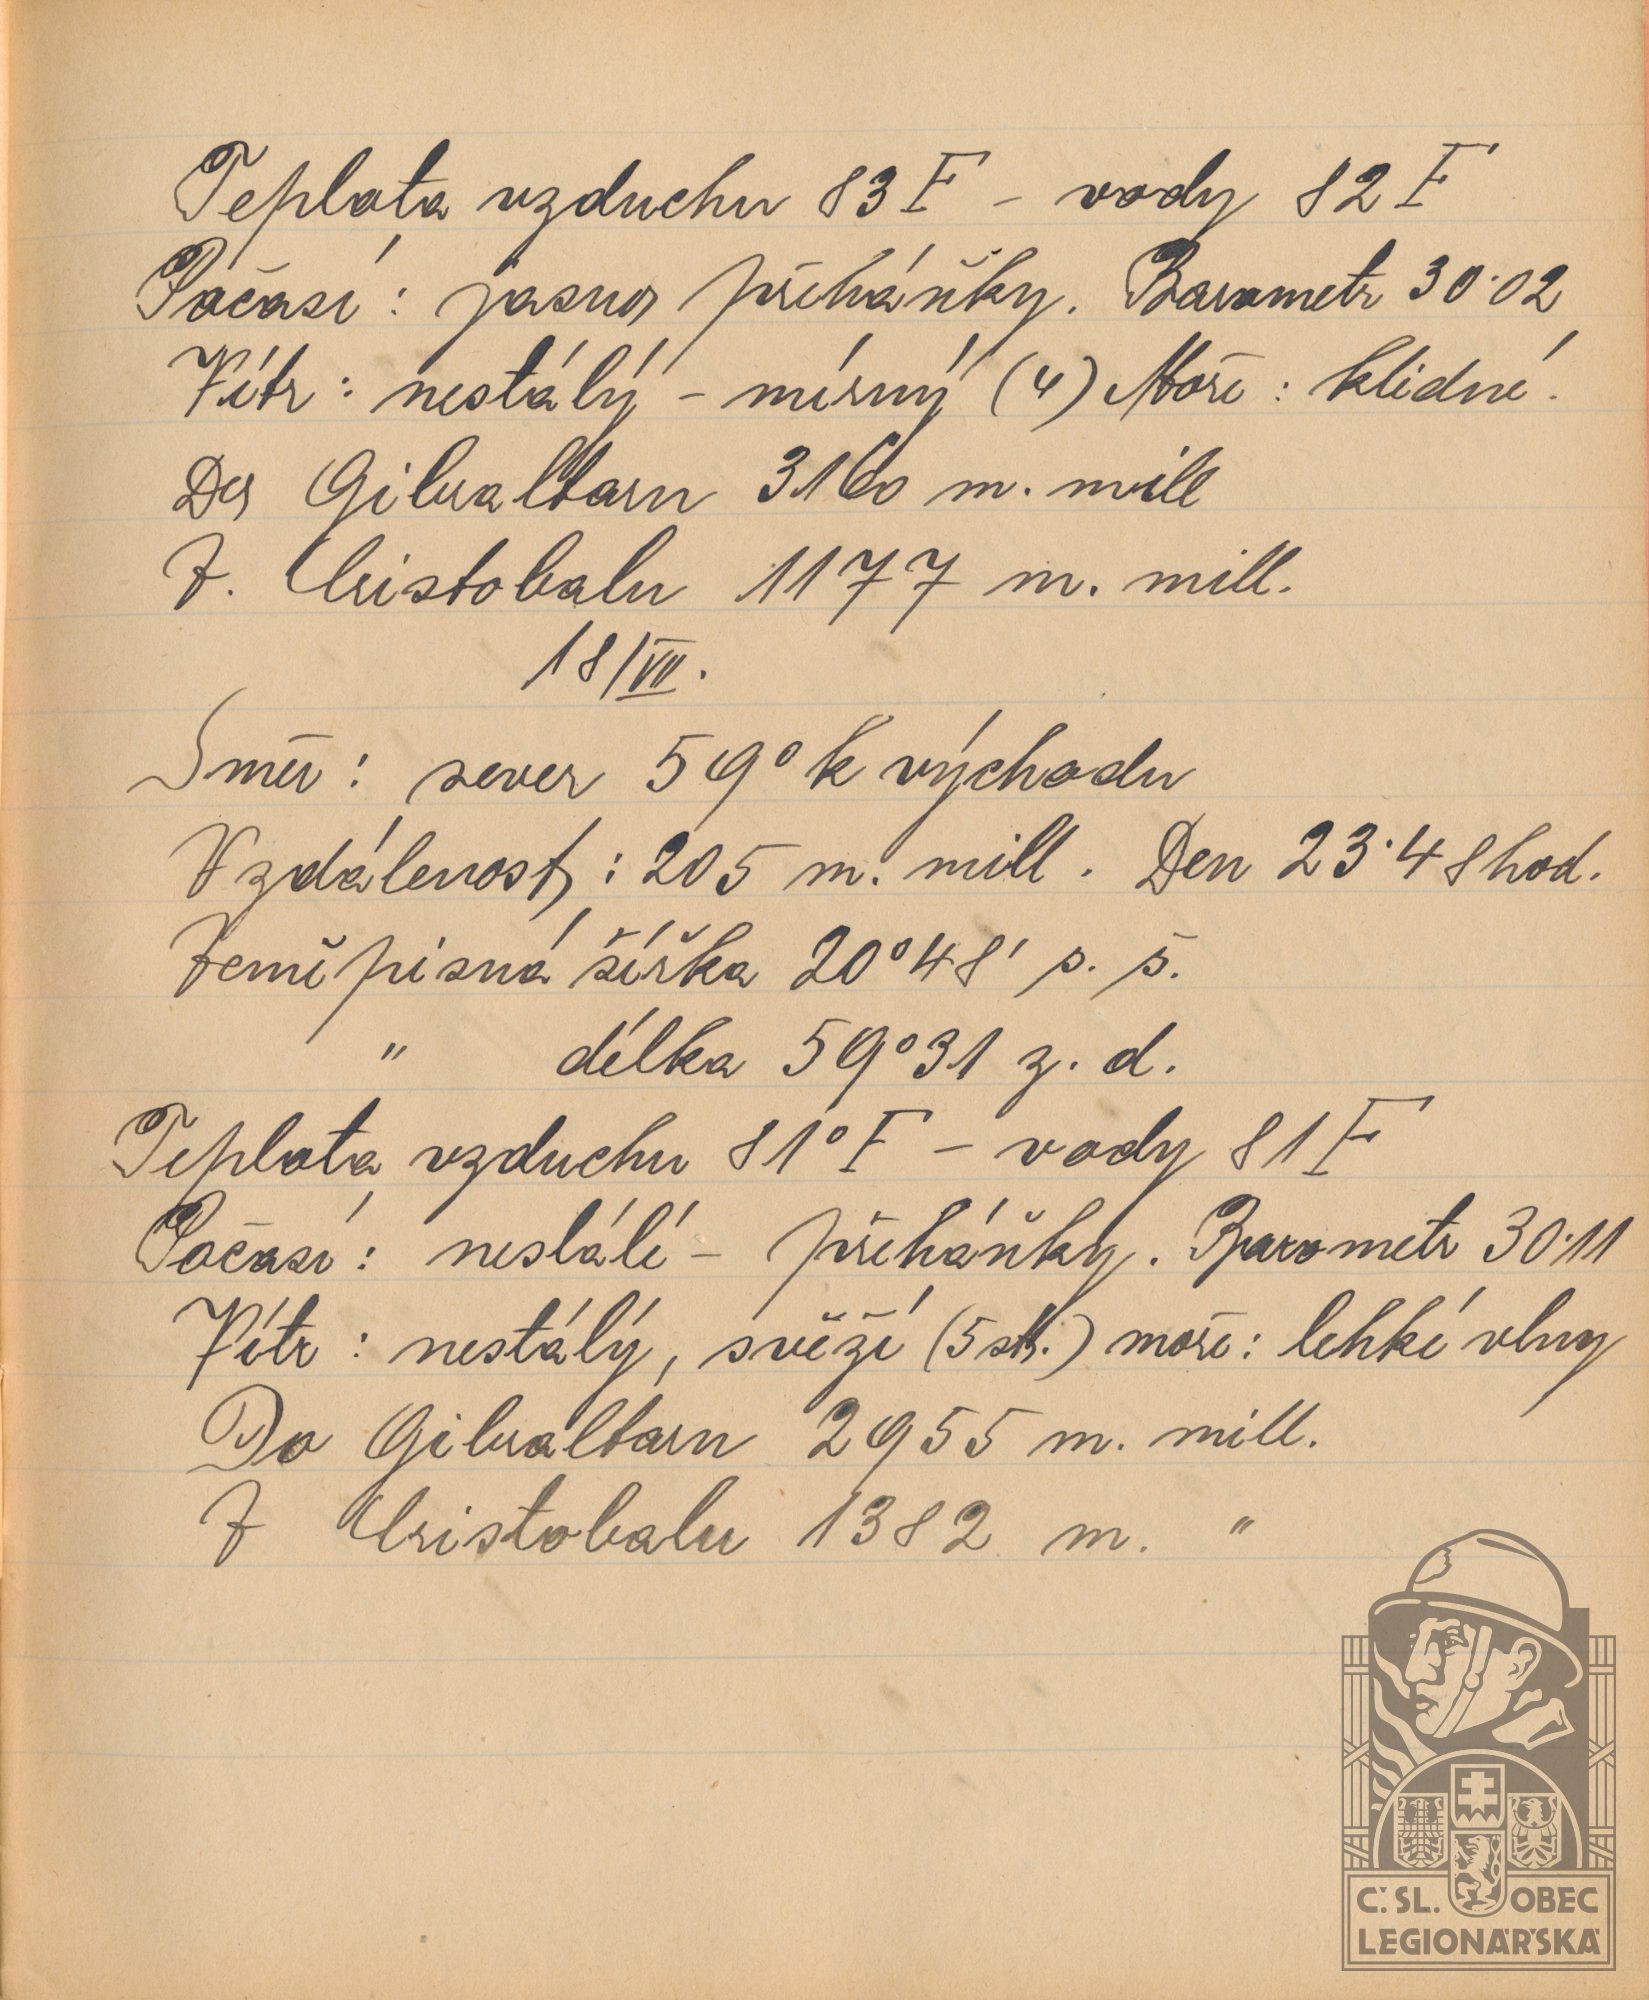 Teplota vzduchu 83 F – vody 82 F
Počasí: jasno, přeháňky. Barometr 30·02
Vítr: nestálý – mírný (4) Moře: klidné.
Do Gibraltaru 3160 m. mill
Z. Cristobalu 1177 m. mill.
18/VII.
Směr: sever 59° k východu
Vzdálenost: 205 m. mill. Den 23·48 hod.
Zeměpisná šířka 20°48' s. š.
" délka 59°31 z. d.
Teplota vzduchu 81° F – vody 81 F
Počasí: nestálé – přeháňky. Barometr 30·11
Vítr: nestálý, svěží (5 st.) moře: lehké vlny
Do Gibraltaru 2955 m. mill.
Z Cristobalu 1382 m. "
Č. SL. OBEC
LEGIONÁŘSKÁ